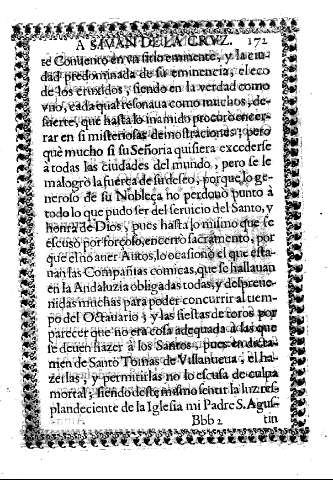 A S. IVAN DE LA CRVZ. 172
te Conuento en vn sitio eminente, y la ciu-
dad predominada de su eminencia, el eco
de los cruxidos, siendo en la verdad como
vno, cada qual resonaua como muchos, de
suerte, que hasta lo inamido procurò encer-
rar en si misteriosas demostraciones; pero
què mucho si su Señoria quisiera excederse
à todas las ciudades del mundo, pero se le
malogrò la fuerça de su deseo, porque lo ge-
neroso de su Nobleça no perdonò punto à
todo lo que pudo ser del seruicio del Santo, y
honra de Dios, pues hasta lo mismo que se
escusò por forçoso, encerrò sacramento, por
que el no auer Autos, lo ocasionò el que esta-
uan las Compañias comicas, que se hallauan
en la Andaluzia obligadas todas, y despreue-
nidas muchas para poder concurrir al tiem-
po del Octauario; y las fiestas de toros por
parecer que no era cosa adequada à las que
se deuen hazer à los Santos, pues en dicta-
men de Santo Tomas de Villanueua, el ha-
zerlas, y permitirlas no lo escusa de culpa
mortal; siendo deste mismo sentir la luz res-
plandeciente de la Iglesia mi Padre S. Agus-
Bbb 2 tin